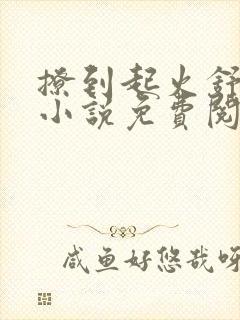 撩到起火舒
小说免費閱
咸鱼好悠哉呀